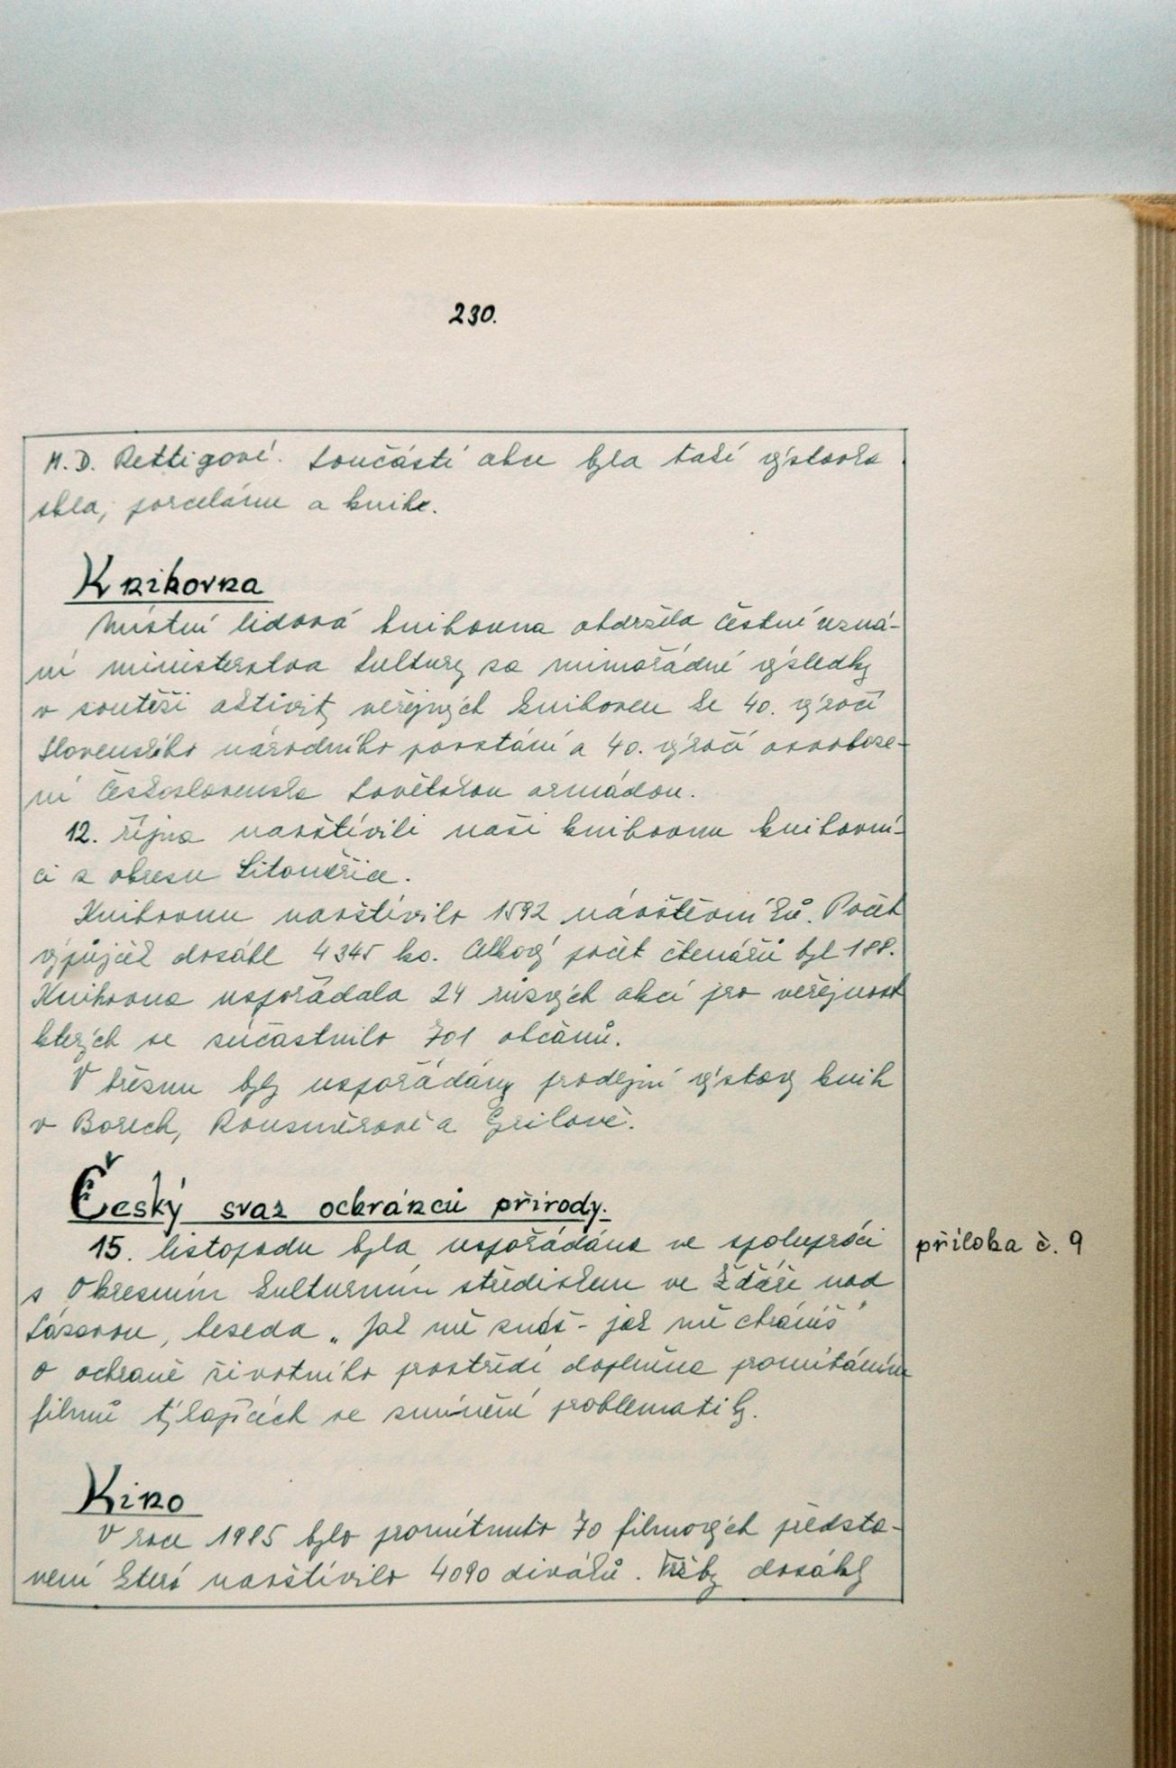 230.
M. D. Rettigové. Součástí akce byla také výstavka
skla, porcelánu a knih.
Knihovna
Místní lidová knihovna obdržela čestné uzná-
ní ministerstva kultury za mimořádné výsledky
v soutěži aktivity veřejných knihoven ke 40. výročí
Slovenského národního povstání a 40. výročí osvoboze-
ní Československa Sovětskou armádou.
12. října navštívili naši knihovnu knihovní-
ci z okresu Litoměřice.
Knihovnu navštívilo 1592 návštěvníků. Počet
výpůjček dosáhl 4345 ks. Celkový počet čtenářů byl 188.
Knihovna uspořádala 24 různých akcí pro veřejnost
kterých se zúčastnilo 701 občanů.
V březnu byly uspořádány prodejní výstavy knih
v Borech, Rousměrově a
Český svaz ochránců přírody.
15. listopadu byla uspořádána ve spolupráci
příloha č. 9
s Okresním kulturním střediskem ve Žďáře nad
Sázavou, beseda „Jak mě znáš - jak mě chráníš"
o ochraně životního prostředí doplněna promítáním
filmů týkajících se zmíněné problematiky.
Kino
V roce 1985 bylo promítnuto 70 filmových předsta-
vení které navštívilo 4090 diváků. Tržby dosáhly